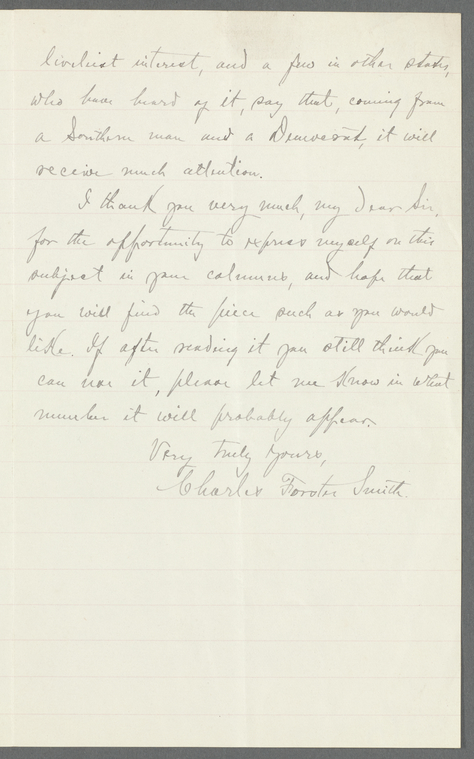 liveliest interest, and a few in other states,
who have heard of it, say that, coming from
a Southern man and a Democrat, it will
receive much attention.
I thank you very much, my Dear Sir,
for the opportunity to express myself on this
subject in your columns, and hope that
you will find the piece such as you would
like. If after reading it you still think you
can use it, please let me know in what
number it will probably appear.
Very truly yours,
Charles Forster Smith.